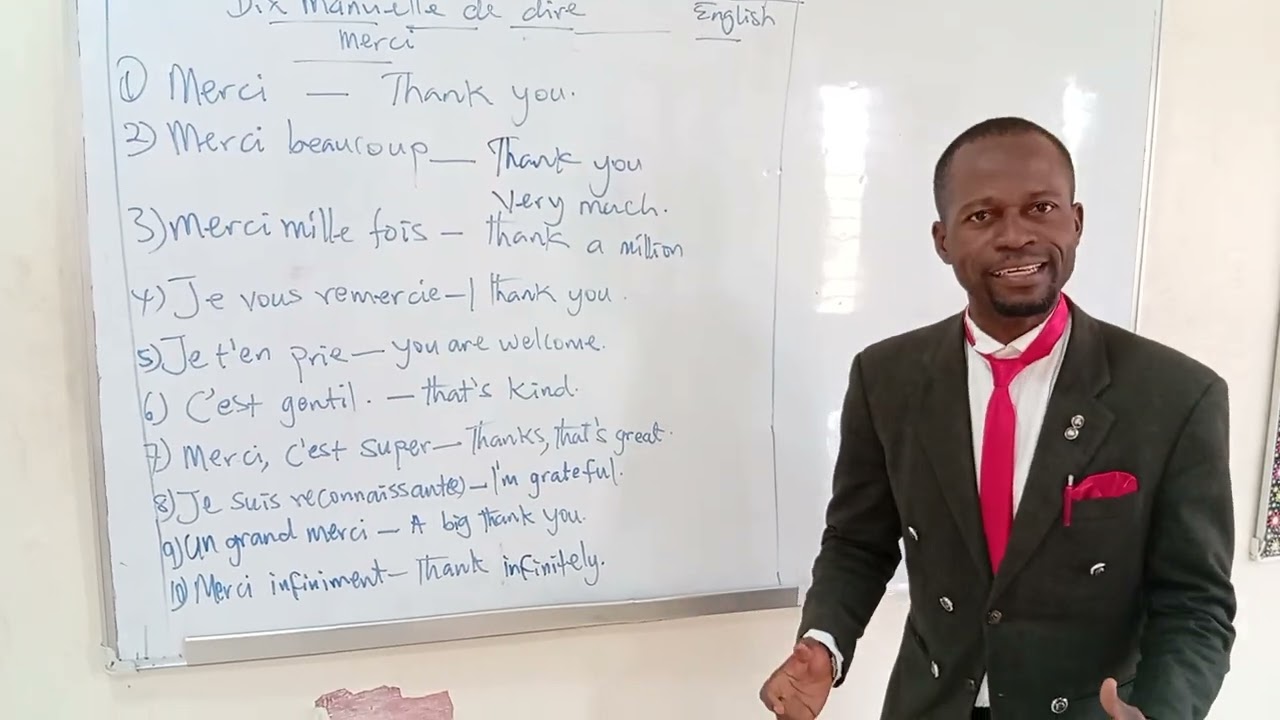 Dix Manuelle de dire
English
merci
1) Merci — Thank you.
2) Merci beaucoup — Thank you
very much.
3) Merci mille fois – thank a million
4) Je vous remercie – I thank you.
5) Je t'en prie — you are welcome.
6) C'est gentil. — that's kind.
7) Merci, c'est super — Thanks, that's great.
8) Je suis reconnaissant(e) – I'm grateful.
9) Un grand merci – A big thank you.
10) Merci infiniment – Thank infinitely.